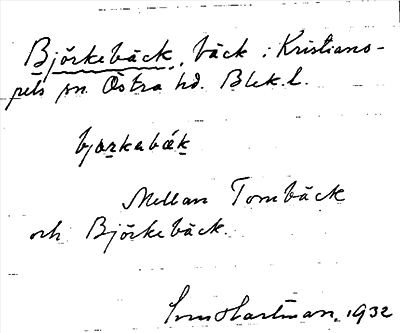 Björkebäck, bäck i Kristiano-
pels sn. Östra hd. Blek. l.
bjarkabäk
Mellan Tornbäck
och Björkebäck.
Sven Hartman. 1932